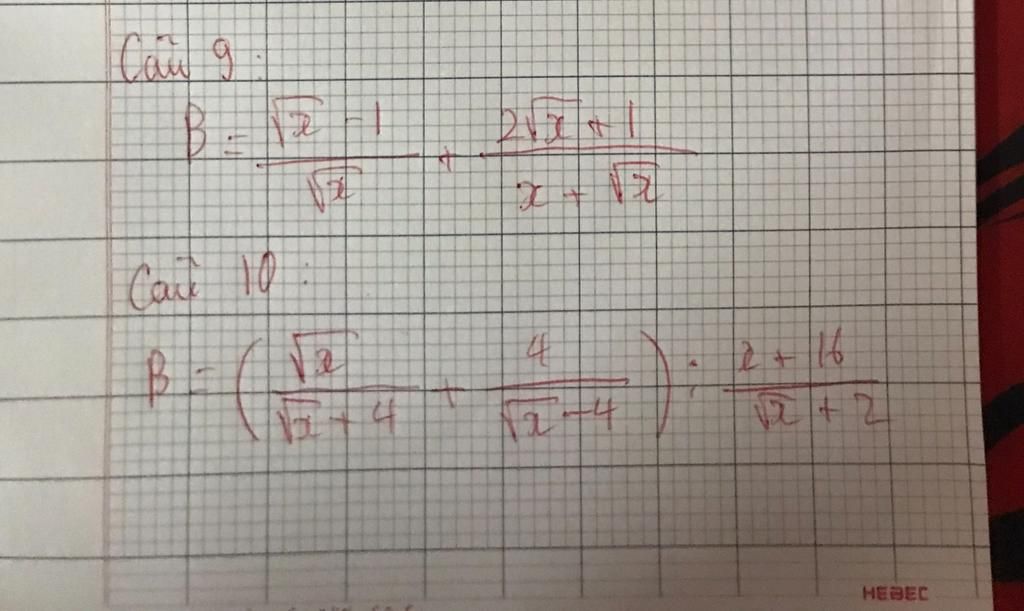 Câu 9:
B = \frac{\sqrt{x} - 1}{\sqrt{x}} + \frac{2\sqrt{x} + 1}{x + \sqrt{x}}
Câu 10:
B = \left( \frac{\sqrt{x}}{\sqrt{x} + 4} + \frac{4}{\sqrt{x} - 4} \right) : \frac{x + 16}{\sqrt{x} + 2}
HEBEC